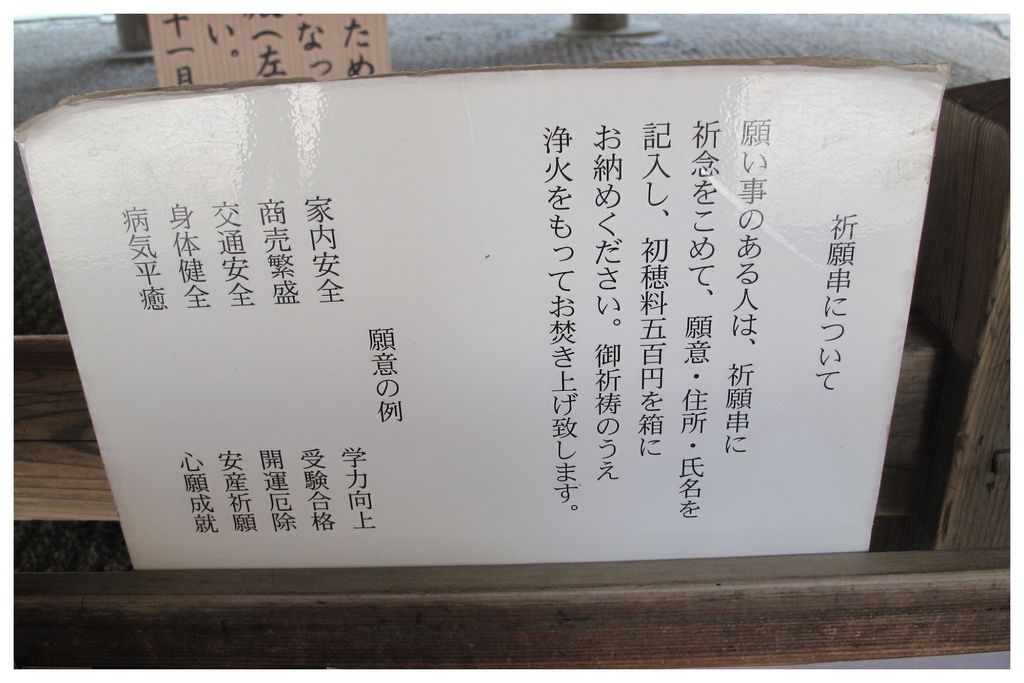 祈願串について
願い事のある人は、祈願串に
祈念をこめて、願意・住所・氏名を
記入し、初穂料五百円を箱に
お納めください。御祈祷のうえ
浄火をもってお焚き上げ致します。
願意の例
家内安全
商売繁盛
交通安全
身体健全
病気平癒
学力向上
受験合格
開運厄除
安産祈願
心願成就
ため
なっ
へ左
い。
十一月